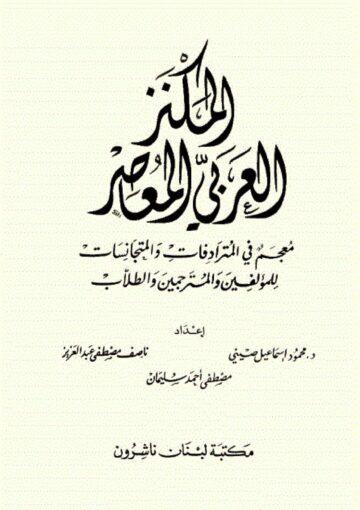 المكنز
العربي المعاصر
معجم في المترادفات والمتجانسات
للمؤلفين والمترجمين والطلاب
إعداد
د. محمود إسماعيل صيني ناصف مصطفى عبد العزيز
مصطفى أحمد سليمان
مكتبة لبنان ناشرون